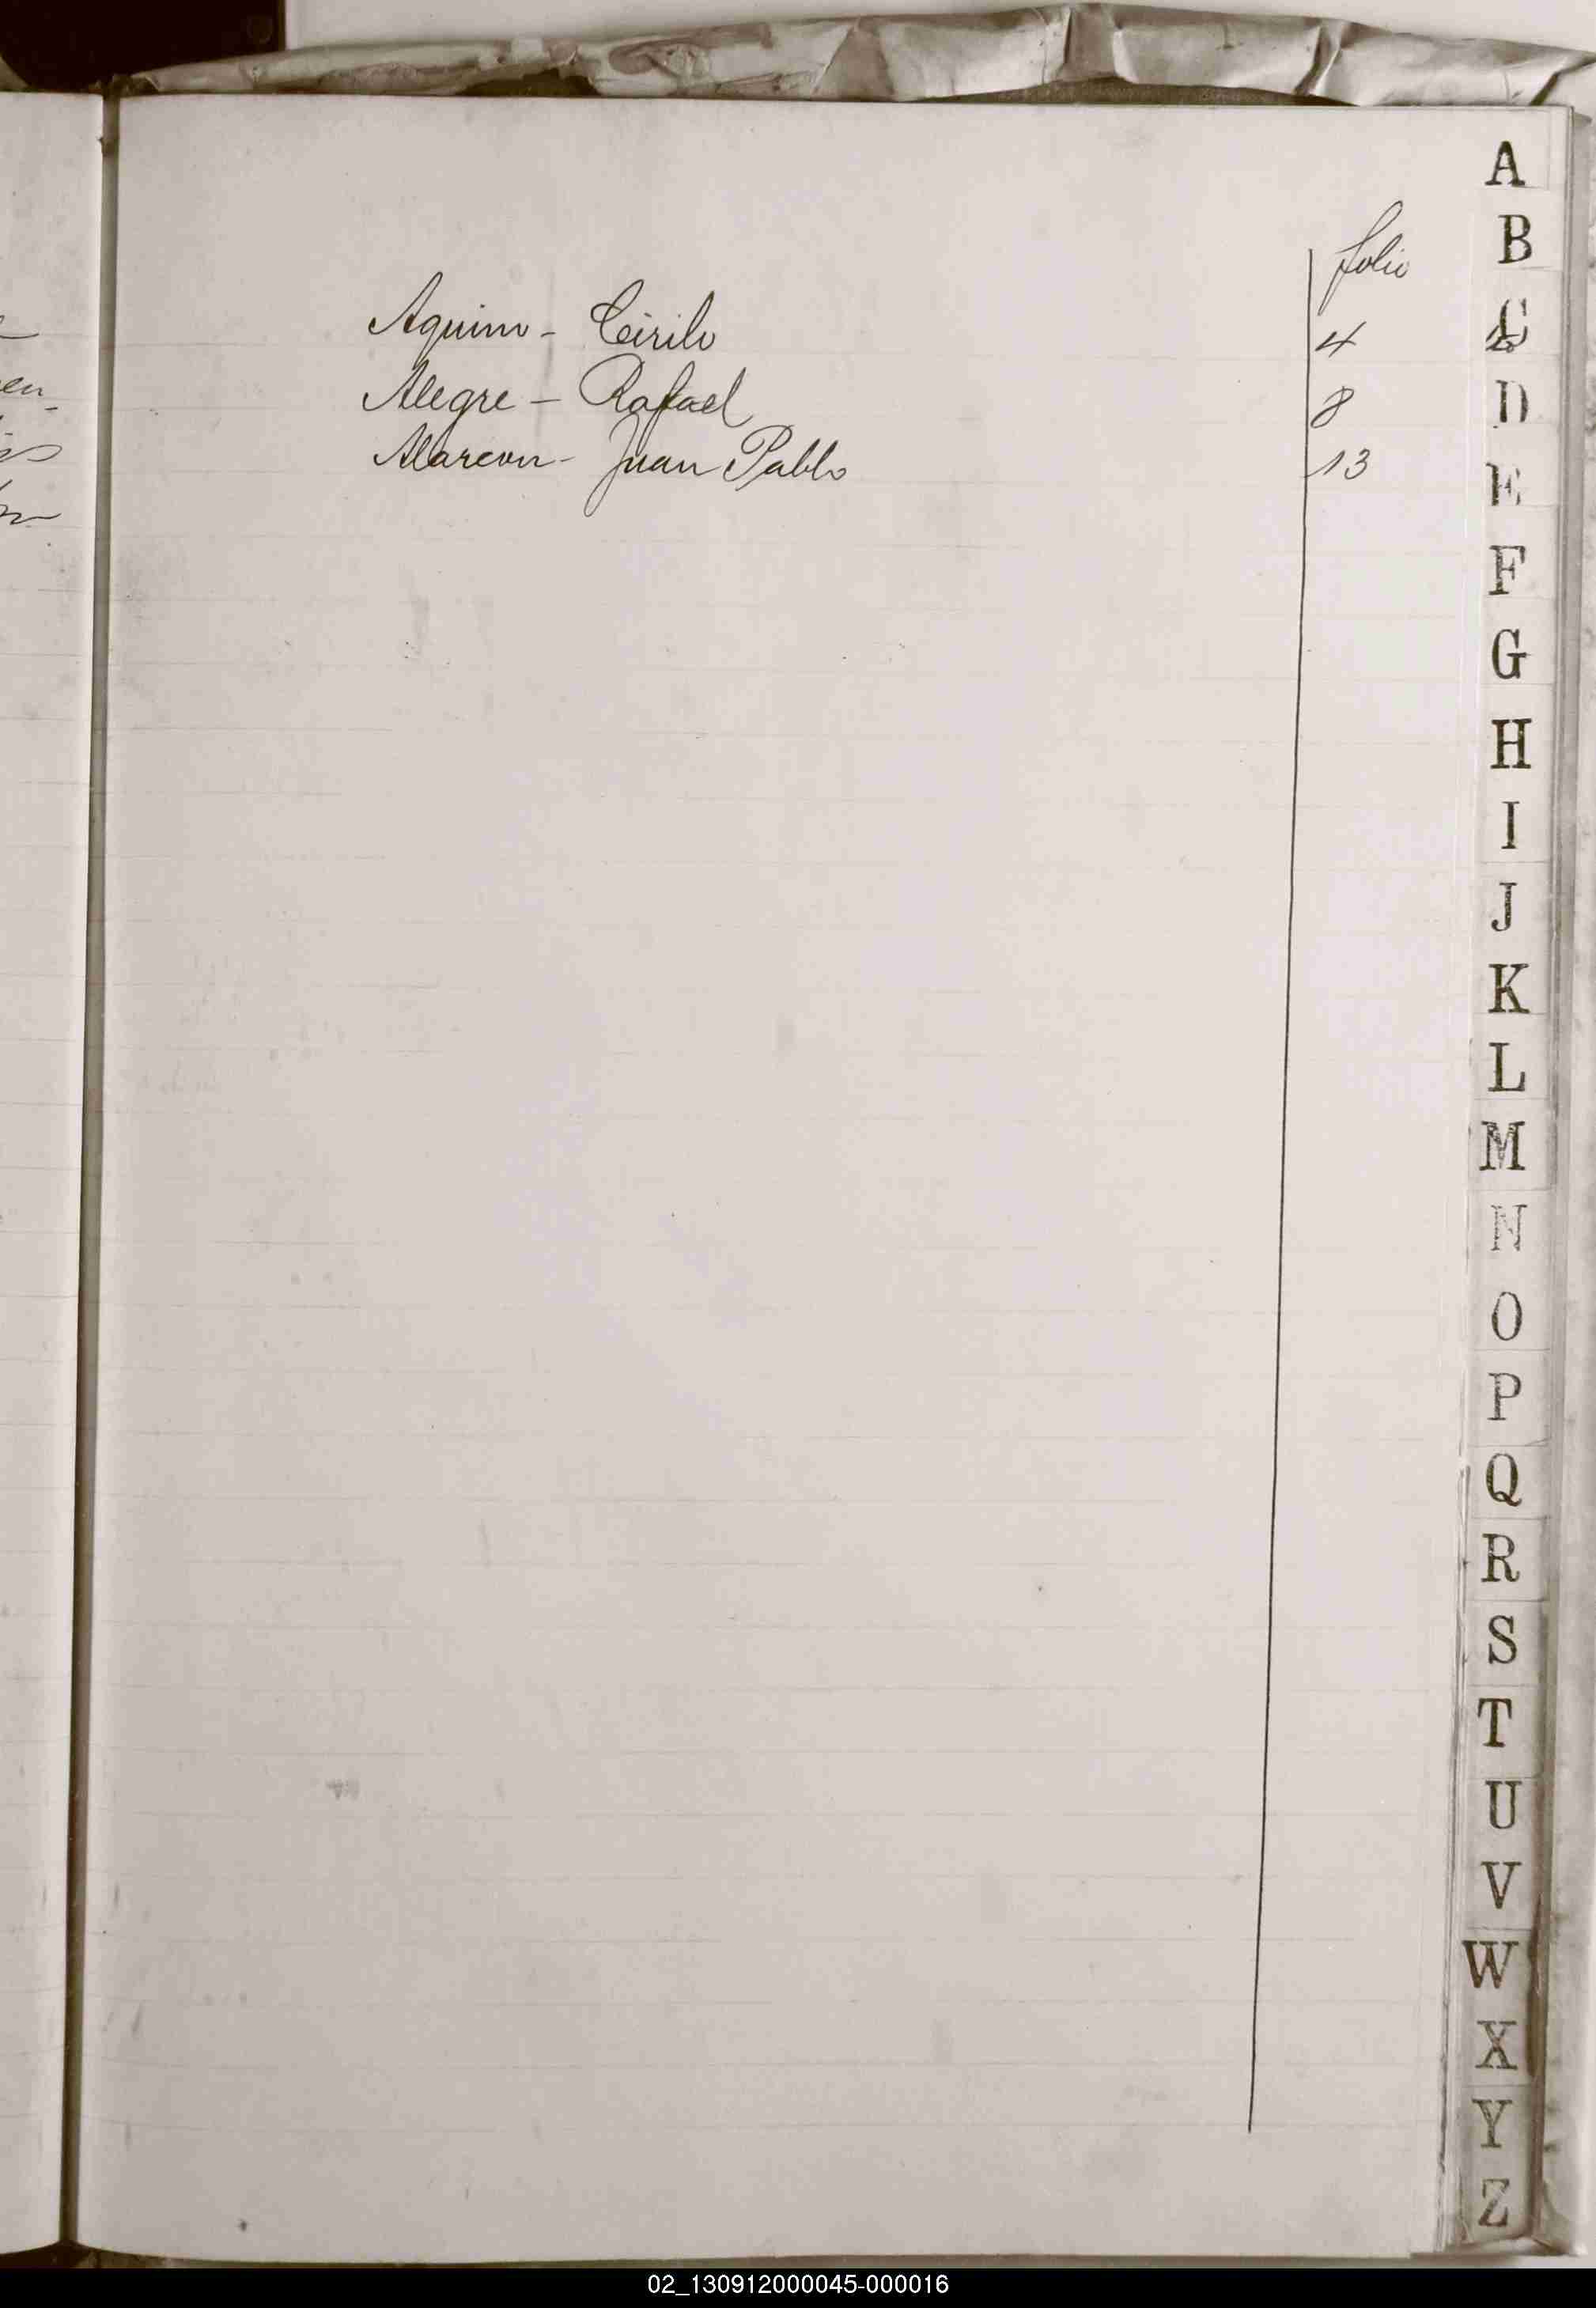 folio
Aquino - Cirilo 4
Alegre - Rafael 8
Alarcon - Juan Pablo 13
A
B
C
D
E
F
G
H
I
J
K
L
M
N
O
P
Q
R
S
T
U
V
W
X
Y
Z
02_130912000045-000016